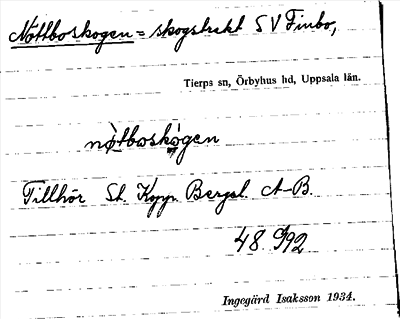 Nöttboskogen = skogstrakt SV Finbo,
Tierps sn, Örbyhus hd, Uppsala län.
nötboskogen
Tillhör St. Kopp. Bergsl. A-B
48 G92
Ingegärd Isaksson 1934.